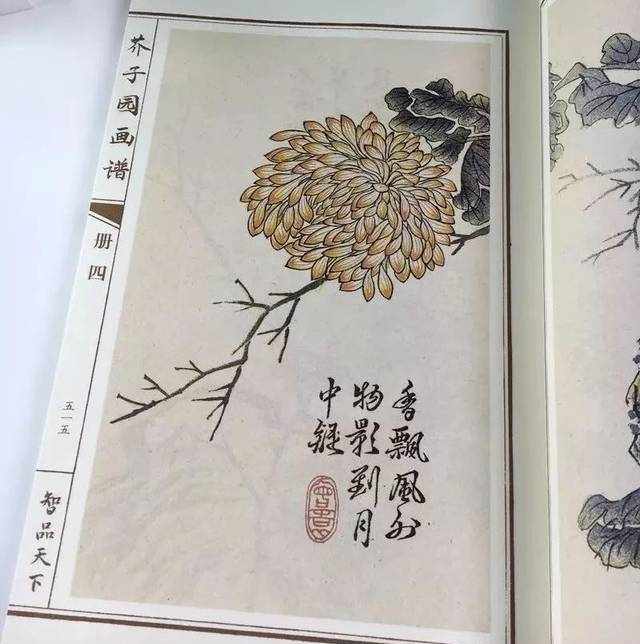 芥子园画谱
册四
五一五
智品天下
香飄風外
別影到月
中疑